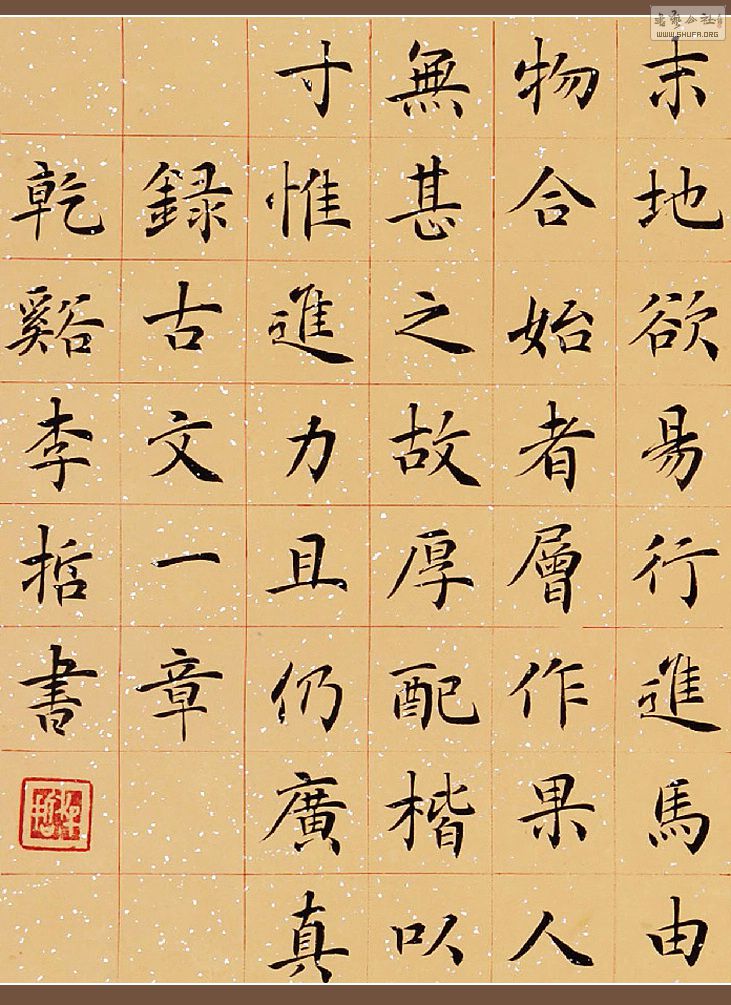 末地欲易行進馬由
物合始者層作果人
無甚之故厚配楷以
寸惟進力且仍廣真
録古文一章
乾谿李哲書
書藝公社
WWW.SHUFA.ORG